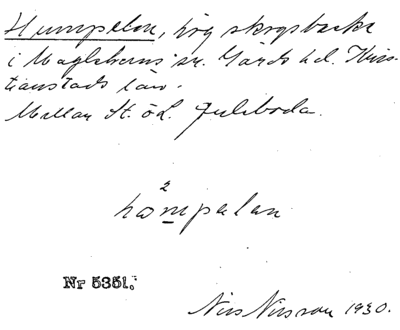 Humpelen, hög skogsbacke
i Maglehems sn. Gärds hd. Kris-
tianstads län.
Mellan St. o. L. Juleboda.
2
hompalan
Nr 5351.
Nils Nilsson 1930.